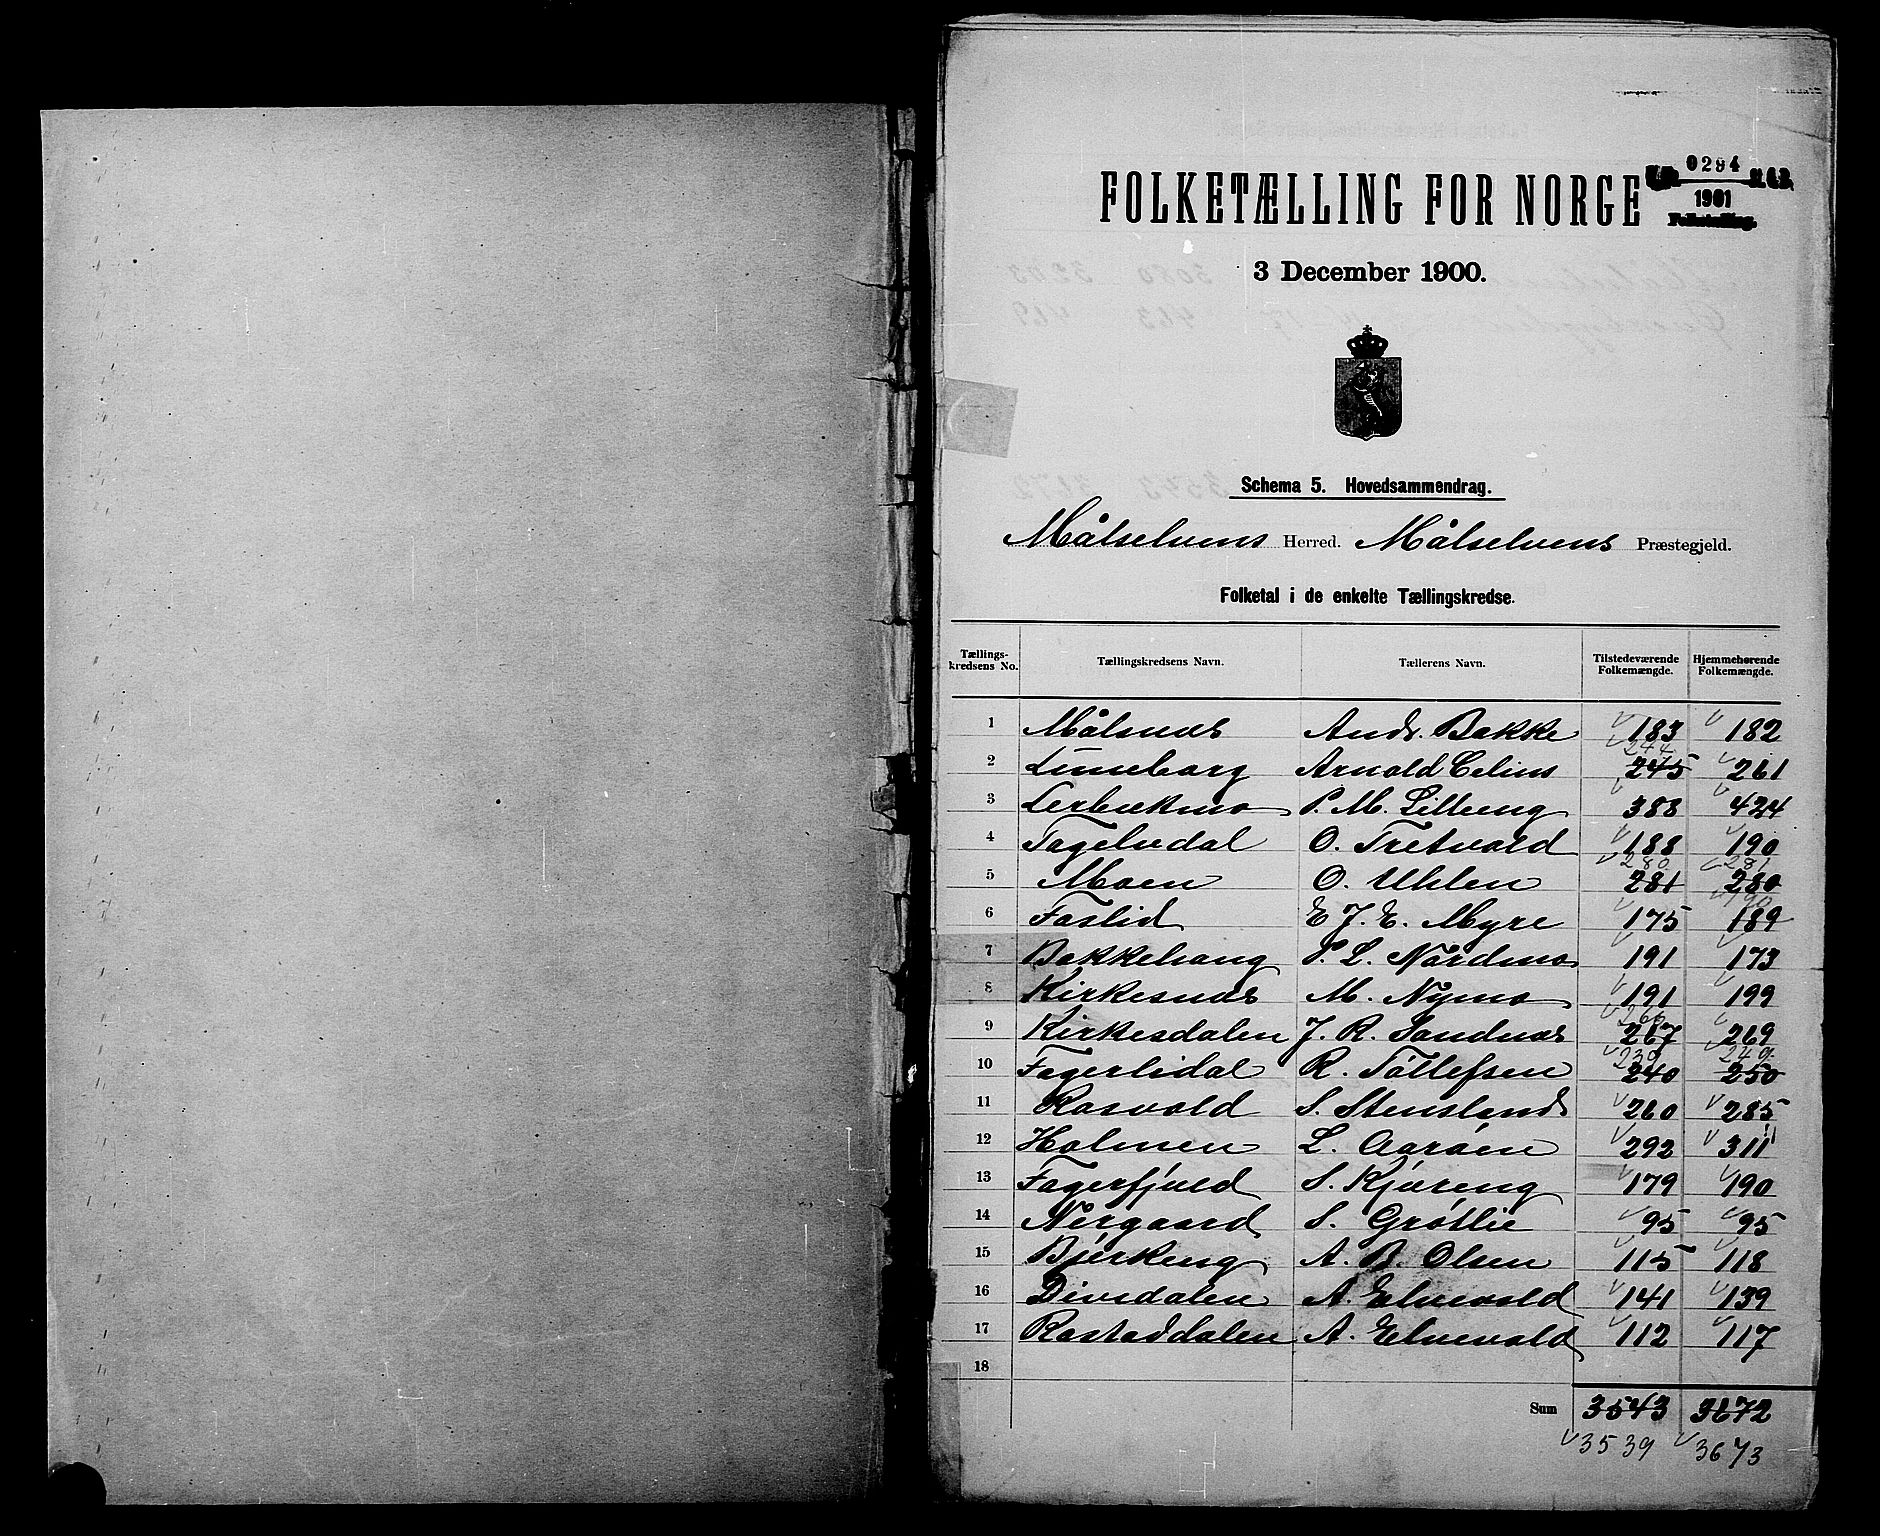 0294
1901
Folketælling.
FOLKETÆLLING FOR NORGE
3 December 1900.
Schema 5. Hovedsammendrag.
Målselvens Herred. Målselvens Præstegjeld.
Folketal i de enkelte Tællingskredse.
Tællings-kredsens No. Tællingskredsens Navn. Tællerens Navn. Tilstedeværende Folkemængde. Hjemmehørende Folkemængde.
1 Målsnæs Andr. Bakke 183 182
244
2 Linneborg Arnold Celius 245 261
3 Lerbækmo P. M. Lilleeng 388 424
4 Tagelvdal O. Tretvold 188 190
280 281
5 Moen O. Uhlen 281 280
190
6 Foslid E J. E. Myre 175 189
7 Bakkehaug P. L. Nordmo 191 173
8 Kirkesnæs M. Nymo 191 199
266
9 Kirkesdalen J. R. Sandnæs 267 269
239 249
10 Fagerlidal R. Tollefsen 240 250
11 Rosvold S. Stensland 260 285
12 Holmen L. Aarøen 292 311
13 Fagerfjeld S. Kjæreng 179 190
14 Nergaard S. Grøtlie 95 95
15 Bjerkeng A. B. Olsen 115 118
16 Divedalen A. Elvevold 141 139
17 Rostaddalen A. Elvevold 112 117
18
Sum 3543 3672
3539 3673